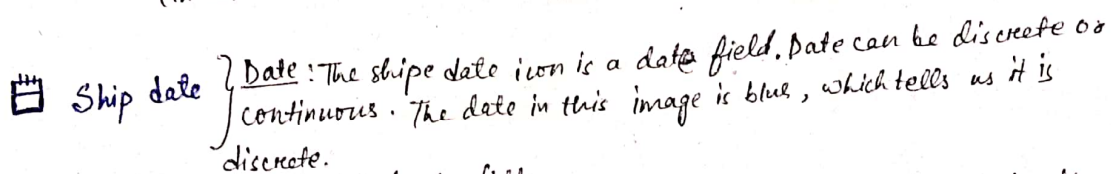 Ship date } Date : The shipe date icon is a date field. Date can be discrete or
continuous. The date in this image is blue, which tells us it is
discrete.